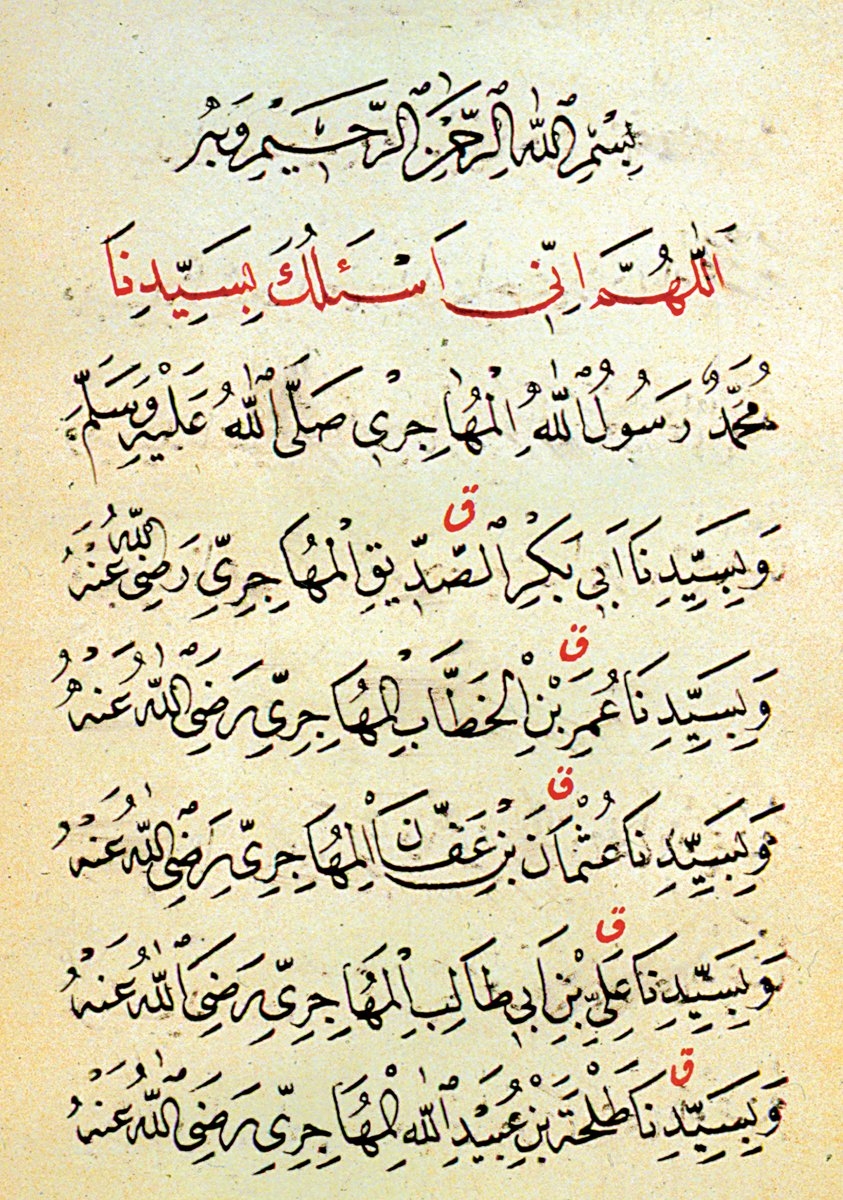 بِسْمِ اللّٰهِ الرَّحْمٰنِ الرَّحِيمِ وَبِهِ
اَللّٰهُمَّ اِنِّى اَسْئَلُكَ بِسَيِّدِنَا
مُحَمَّدٌ رَسُولُ اللّٰهِ الْمُهَاجِرِى صَلَّى اللّٰهُ عَلَيْهِ وَسَلَّمَ
ق
وَبِسَيِّدِنَا اَبِى بَكْرِ الصِّدِّيقِ الْمُهَاجِرِىِّ رَضِىَ اللّٰهُ عَنْهُ
ق
وَبِسَيِّدِنَا عُمَرَ بْنِ الْخَطَّابِ الْمُهَاجِرِىِّ رَضِىَ اللّٰهُ عَنْهُ
ق
وَبِسَيِّدِنَا عُثْمَانَ بْنِ عَفَّانَ الْمُهَاجِرِىِّ رَضِىَ اللّٰهُ عَنْهُ
ق
وَبِسَيِّدِنَا عَلِىِّ بْنِ اَبِى طَالِبِ الْمُهَاجِرِىِّ رَضِىَ اللّٰهُ عَنْهُ
ق
وَبِسَيِّدِنَا طَلْحَةَ بْنِ عُبَيْدِ اللّٰهِ الْمُهَاجِرِىِّ رَضِىَ اللّٰهُ عَنْهُ